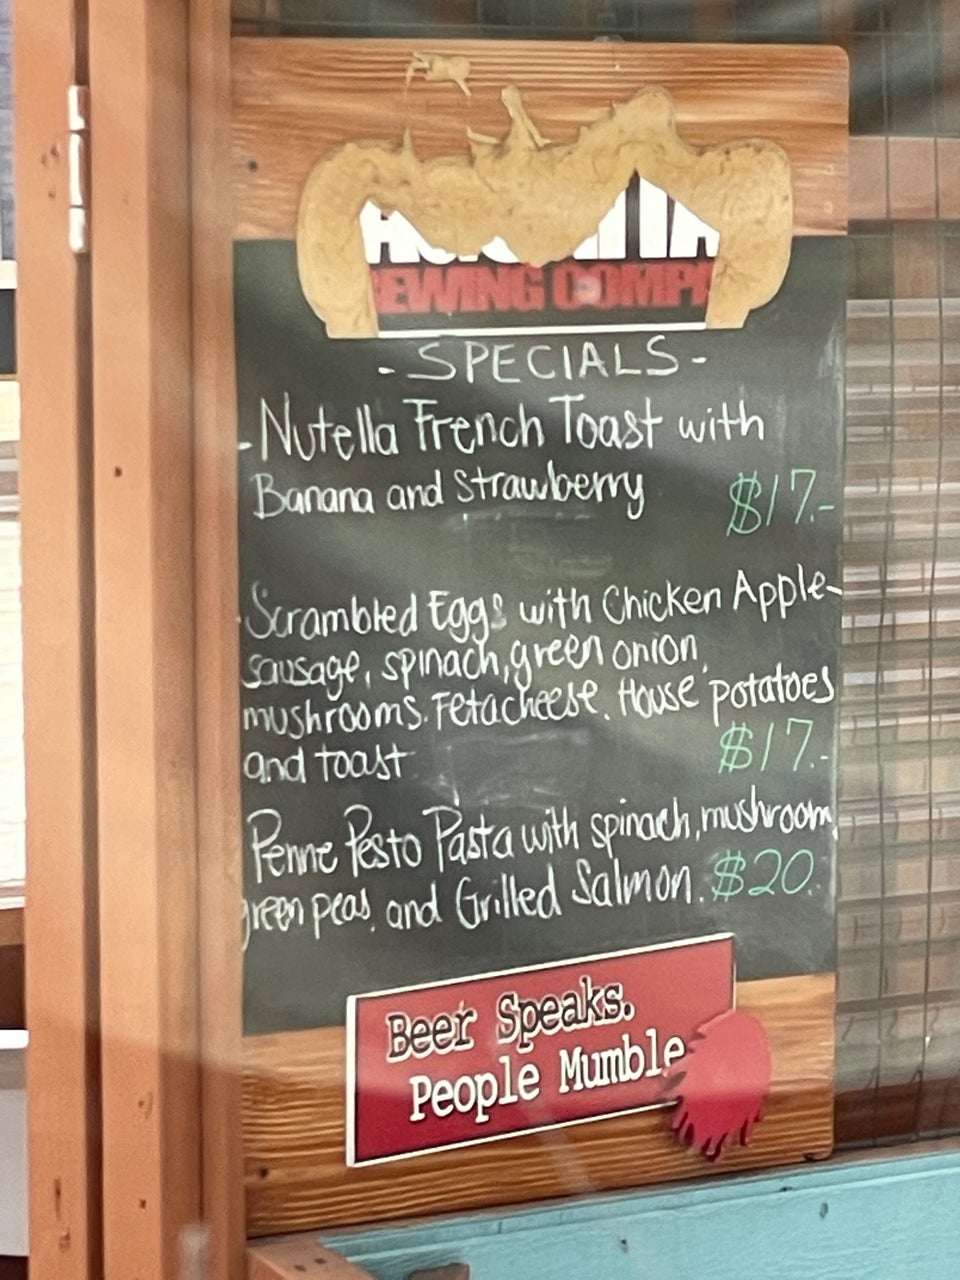 SPECIALS
- Nutella French Toast with
Banana and Strawberry $17.-
Scrambled Eggs with Chicken Apple-
sausage, spinach, green onion,
mushrooms. Fetacheese. House potatoes
and toast $17.-
Penne Pesto Pasta with spinach, mushroom,
green peas, and Grilled Salmon. $20.
Beer Speaks.
People Mumble